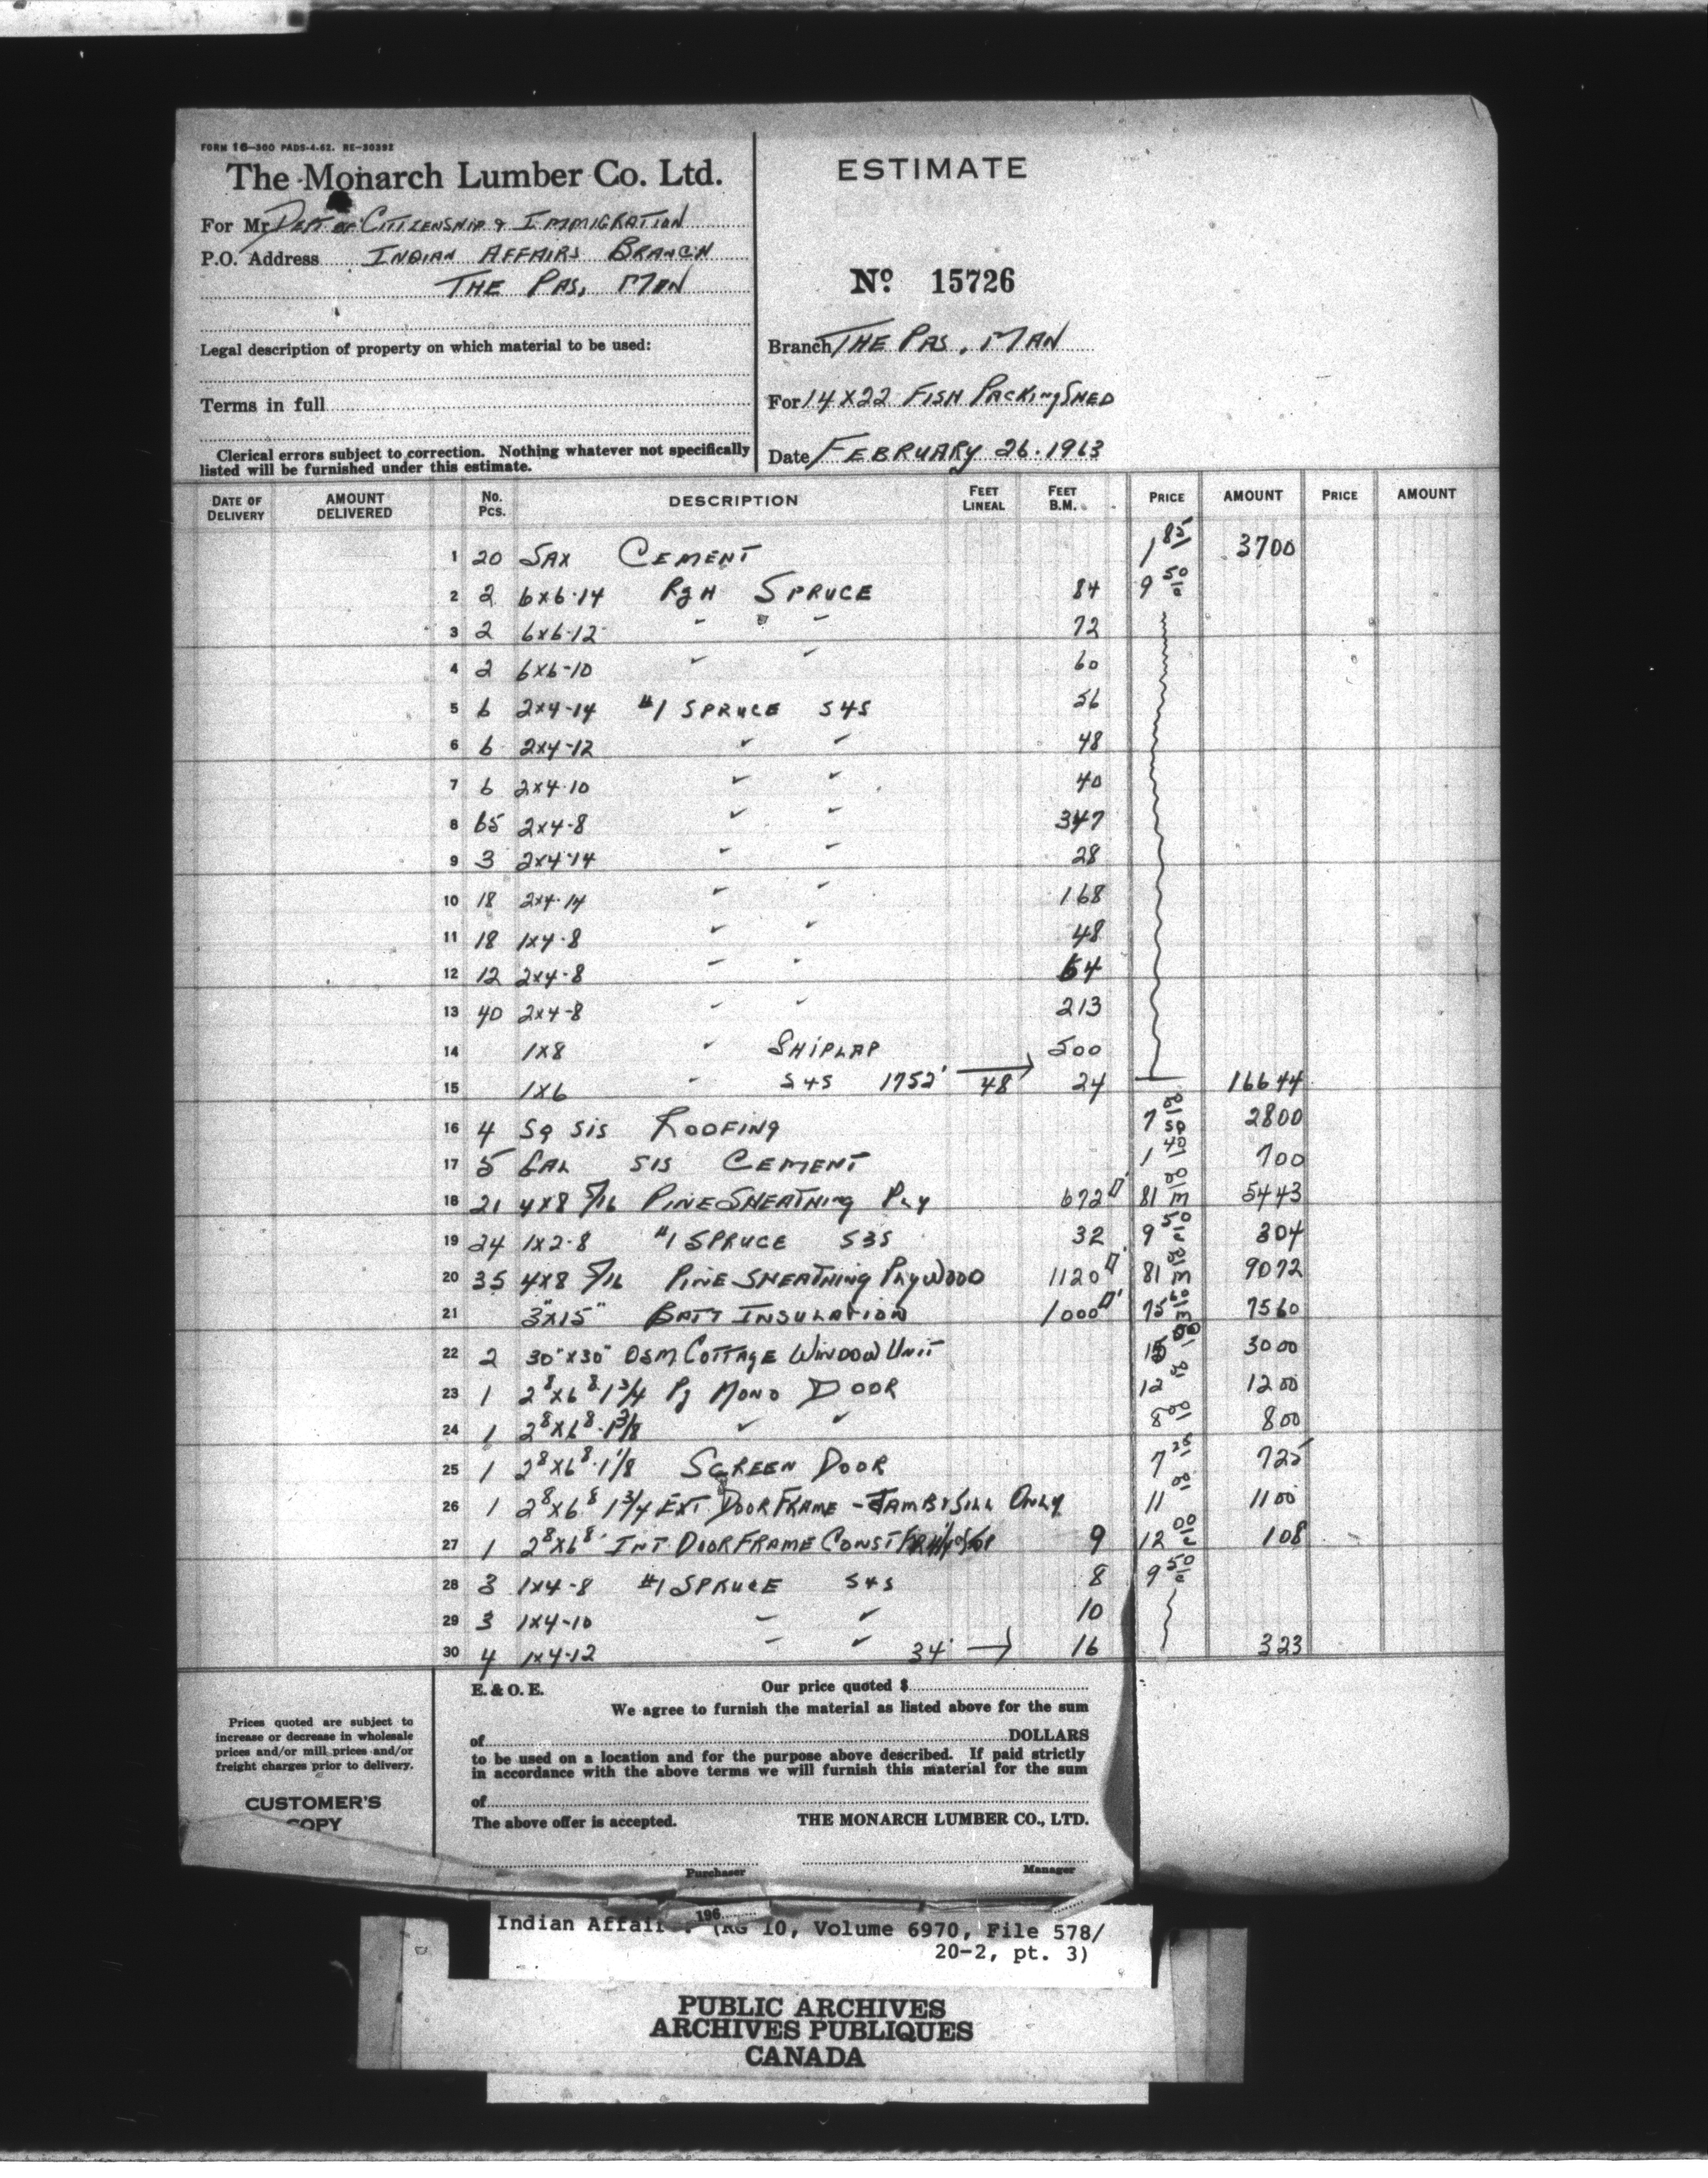 FORM 16-300 PADS-4-62. RE-30392
The Monarch Lumber Co. Ltd.
For Mr. DEPT OF CITIZENSHIP & IMMIGRATION
P.O. Address INDIAN AFFAIRS BRANCH
THE PAS, MAN
Legal description of property on which material to be used:
Terms in full
Clerical errors subject to correction. Nothing whatever not specifically
listed will be furnished under this estimate.
ESTIMATE
No. 15726
Branch THE PAS, MAN
For 14X22 FISH PACKING SHED
Date FEBRUARY 26. 1963
DATE OF DELIVERY AMOUNT DELIVERED No. Pcs. DESCRIPTION FEET LINEAL FEET B.M. PRICE AMOUNT PRICE AMOUNT
1 20 SAX CEMENT 1 85 3700
2 2 6x6-14 RgH SPRUCE 84 9 50 c
3 2 6x6-12 " " " 72
4 2 6x6-10 " " 60
5 6 2x4-14 #1 SPRUCE S4S 56
6 6 2x4-12 " " 48
7 6 2x4-10 " " 40
8 65 2x4-8 " " 347
9 3 2x4-14 " " 28
10 18 2x4-14 " " 168
11 18 1x4-8 " " 48
12 12 2x4-8 " " 64
13 40 2x4-8 " " 213
14 1x8 " SHIPLAP 500
15 1x6 " S4S 1752' → 48 24 16644
16 4 Sq SIS ROOFING 7 00 SQ 2800
17 5 GAL SIS CEMENT 1 40 700
18 21 4x8 5/16 PINE SHEATHING PLY 672□' 81 00 M 5443
19 24 1x2-8 #1 SPRUCE S3S 32 9 50 c 304
20 35 4x8 5/16 PINE SHEATHING PLYWOOD 1120□' 81 00 M 9072
21 3"x15" BATT INSULATION 1000□' 75 60 M 7560
22 2 30"x30" OSM COTTAGE WINDOW UNIT 15 00 3000
23 1 2⁸x6⁸-1 3/4 Pg MONO DOOR 12 00 1200
24 1 2⁸x6⁸-1 3/8 " " 8 00 800
25 1 2⁸x6⁸-1 1/8 SCREEN DOOR 7 25 725
26 1 2⁸x6⁸ 1 3/4 EXT. DOOR FRAME - JAMB & SILL ONLY 11 00 1100
27 1 2⁸x6⁸ INT DOOR FRAME CONST 9 12 00 c 108
28 3 1x4-8 #1 SPRUCE S4S 8 9 50 c
29 3 1x4-10 " " 10
30 4 1x4-12 " " 34' → 16 323
E. & O. E. Our price quoted $
We agree to furnish the material as listed above for the sum
of DOLLARS
to be used on a location and for the purpose above described. If paid strictly
in accordance with the above terms we will furnish this material for the sum
of
The above offer is accepted. THE MONARCH LUMBER CO., LTD.
Purchaser Manager
196
Prices quoted are subject to
increase or decrease in wholesale
prices and/or mill prices and/or
freight charges prior to delivery.
CUSTOMER'S
COPY
Indian Affair . (RG 10, Volume 6970, File 578/
20-2, pt. 3)
PUBLIC ARCHIVES
ARCHIVES PUBLIQUES
CANADA